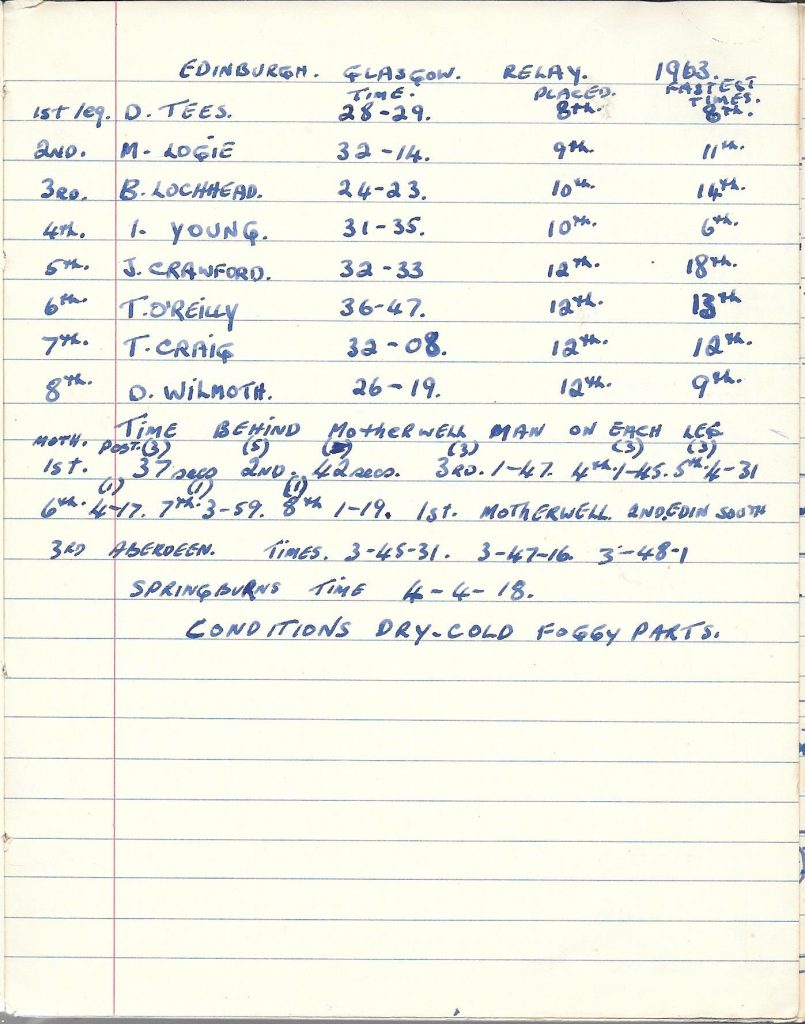 EDINBURGH. GLASGOW. RELAY. 1963.
TIME. PLACED. FASTEST TIMES.
1st/eg. D. TEES. 28-29. 8th. 8th.
2ND. M. LOGIE 32-14. 9th. 11th.
3RD. B. LOCHHEAD. 24-23. 10th. 14th.
4th. I. YOUNG. 31-35. 10th. 6th.
5th. J. CRAWFORD. 32-33 12th. 18th.
6th T. O'REILLY 36-47. 12th. 13th
7th. T. CRAIG 32-08. 12th. 12th.
8th. D. WILMOTH. 26-19. 12th. 9th.
TIME BEHIND MOTHERWELL MAN ON EACH LEG
MOTH. POST. (3) (5) (3) (3) (3)
1st. 37 secs 2ND. 42 secs. 3RD. 1-47. 4th. 1-45. 5th. 4-31
(1) (1) (1)
6th. 4-17. 7th. 3-59. 8th 1-19. 1st. MOTHERWELL 2ND. EDIN SOUTH
3RD ABERDEEN. TIMES. 3-45-31. 3-47-16. 3-48-1
SPRINGBURNS TIME 4-4-18.
CONDITIONS DRY-COLD FOGGY PARTS.